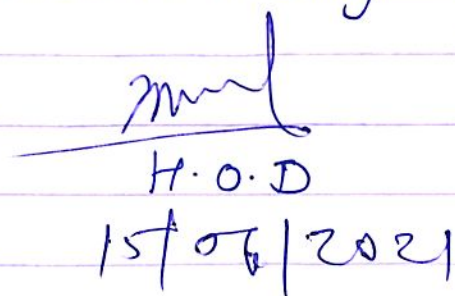 H.O.D
15/06/2021